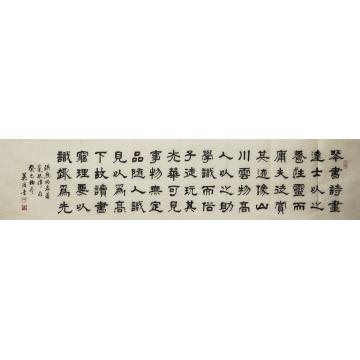 琴書詩畫
達士以之
養性靈而
庸夫徒賞
其迹像山
川雲物高
人以之助
學識而俗
子徒玩其
光華可見
事物無定
品隨人識
見以為高
下故讀書
窮理要以
識趣為先
菜根譚句
癸巳初
書